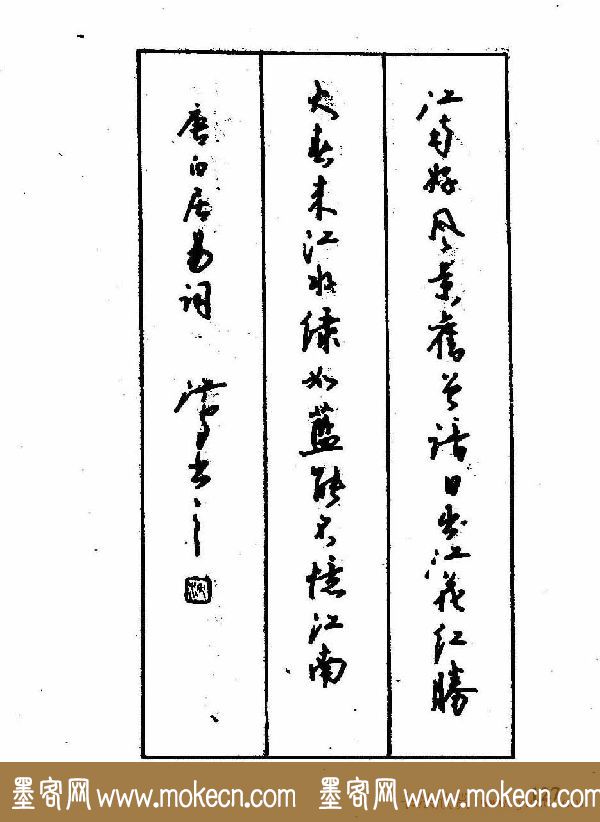 江南好風景舊曾諳日出江花红勝
火春来江水绿如蓝能不憶江南
唐白居易词
墨客网 www.mokecn.com 墨客网 www.mokecn.com